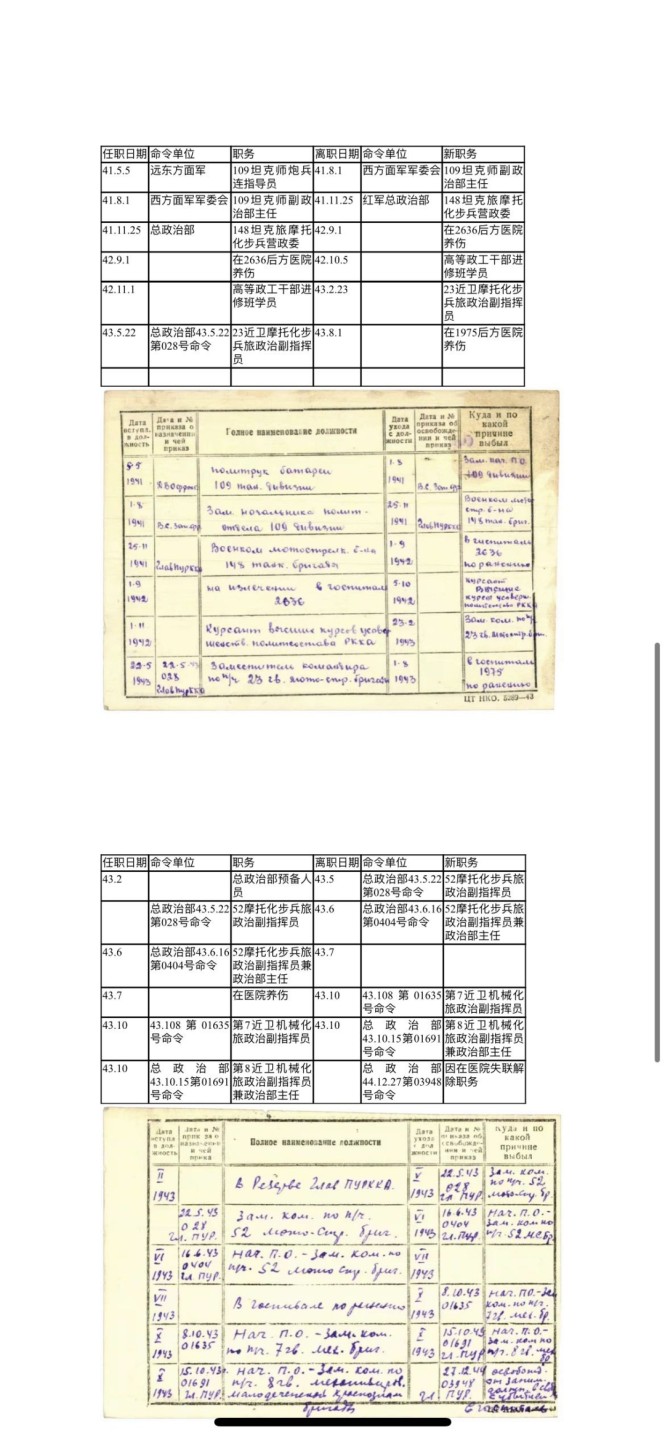 任职日期 命令单位 职务 离职日期 命令单位 新职务
41.5.5 远东方面军 109坦克师炮兵连指导员 41.8.1 西方面军军委会 109坦克师副政治部主任
41.8.1 西方面军军委会 109坦克师副政治部主任 41.11.25 红军总政治部 148坦克旅摩托化步兵营政委
41.11.25 总政治部 148坦克旅摩托化步兵营政委 42.9.1 在2636后方医院养伤
42.9.1 在2636后方医院养伤 42.10.5 高等政工干部进修班学员
42.11.1 高等政工干部进修班学员 43.2.23 23近卫摩托化步兵旅政治副指挥员
43.5.22 总政治部43.5.22第028号命令 23近卫摩托化步兵旅政治副指挥员 43.8.1 在1975后方医院养伤
Полное наименование должности
Куда и по какой причине выбыл
политрук батареи 109 тан. дивизии
1941
Зам. нач. П.О. 109 дивизии
1·8 1941 Зам начальника полит-отдела 109 дивизии 25·11 1941
25·11 1941 Военком мотострелк. б-на 148 танк. бригады 1·9 1942 в госпиталь 2636 по ранению
1·9 1942 на излечении в госпитале 2636 5·10 1942
1·11 1942 Курсант высших курсов усовершенств. политсостава РККА 23-2 1943
22-5 1943 028 Заместитель командира по п/ч 23 гв. мото-стр. бригады 1·8 1943 в госпиталь 1975 по ранению
ЦТ НКО.
任职日期 命令单位 职务 离职日期 命令单位 新职务
43.2 总政治部预备人员 43.5 总政治部43.5.22第028号命令 52摩托化步兵旅政治副指挥员
总政治部43.5.22第028号命令 52摩托化步兵旅政治副指挥员 43.6 总政治部43.6.16第0404号命令 52摩托化步兵旅政治副指挥员兼政治部主任
43.6 总政治部43.6.16第0404号命令 52摩托化步兵旅政治副指挥员兼政治部主任 43.7
43.7 在医院养伤 43.10 43.108第01635号命令 第7近卫机械化旅政治副指挥员
43.10 43.108第01635号命令 第7近卫机械化旅政治副指挥员 43.10 总政治部43.10.15第01691号命令 第8近卫机械化旅政治副指挥员兼政治部主任
43.10 总政治部43.10.15第01691号命令 第8近卫机械化旅政治副指挥员兼政治部主任 总政治部44.12.27第03948号命令 因在医院失联解除职务
Полное наименование должности
какой причине выбыл
II 1943 В Резерве Глав ПУРККА. V 1943 22.5.43 028 Гл. ПУР. Зам. ком. по п/ч. 52
22.5.43 028 Гл. ПУР. Зам. ком. по п/ч. 52 мото-стр. бриг. VI 1943 16.6.43 0404 Гл. ПУР. Нач. П.О.-Зам. ком по п/ч 52
VI 1943 16.6.43 0404 Гл. ПУР. Нач. П.О. - Зам. ком. по п/ч. 52 мото стр. бриг. VII 1943
VII 1943 В госпитале по ранению X 1943 8.10.43 01635 Нач. П.О.-Зам ком. по п/ч. 7 гв. мех. бр.
X 1943 8.10.43 01635 Нач. П.О. - Зам. ком. по п/ч. 7 гв. мех. бриг. X 1943 15.10.43 01691 Гл. ПУР Нач. П.О.-Зам. ком. по п/ч. 8 гв. мех. бр
X 1943 15.10.43 01691 Гл. ПУР. Нач. П.О. - Зам. ком. по п/ч. 8 гв. 27.12.44 03948 Гл. ПУР.